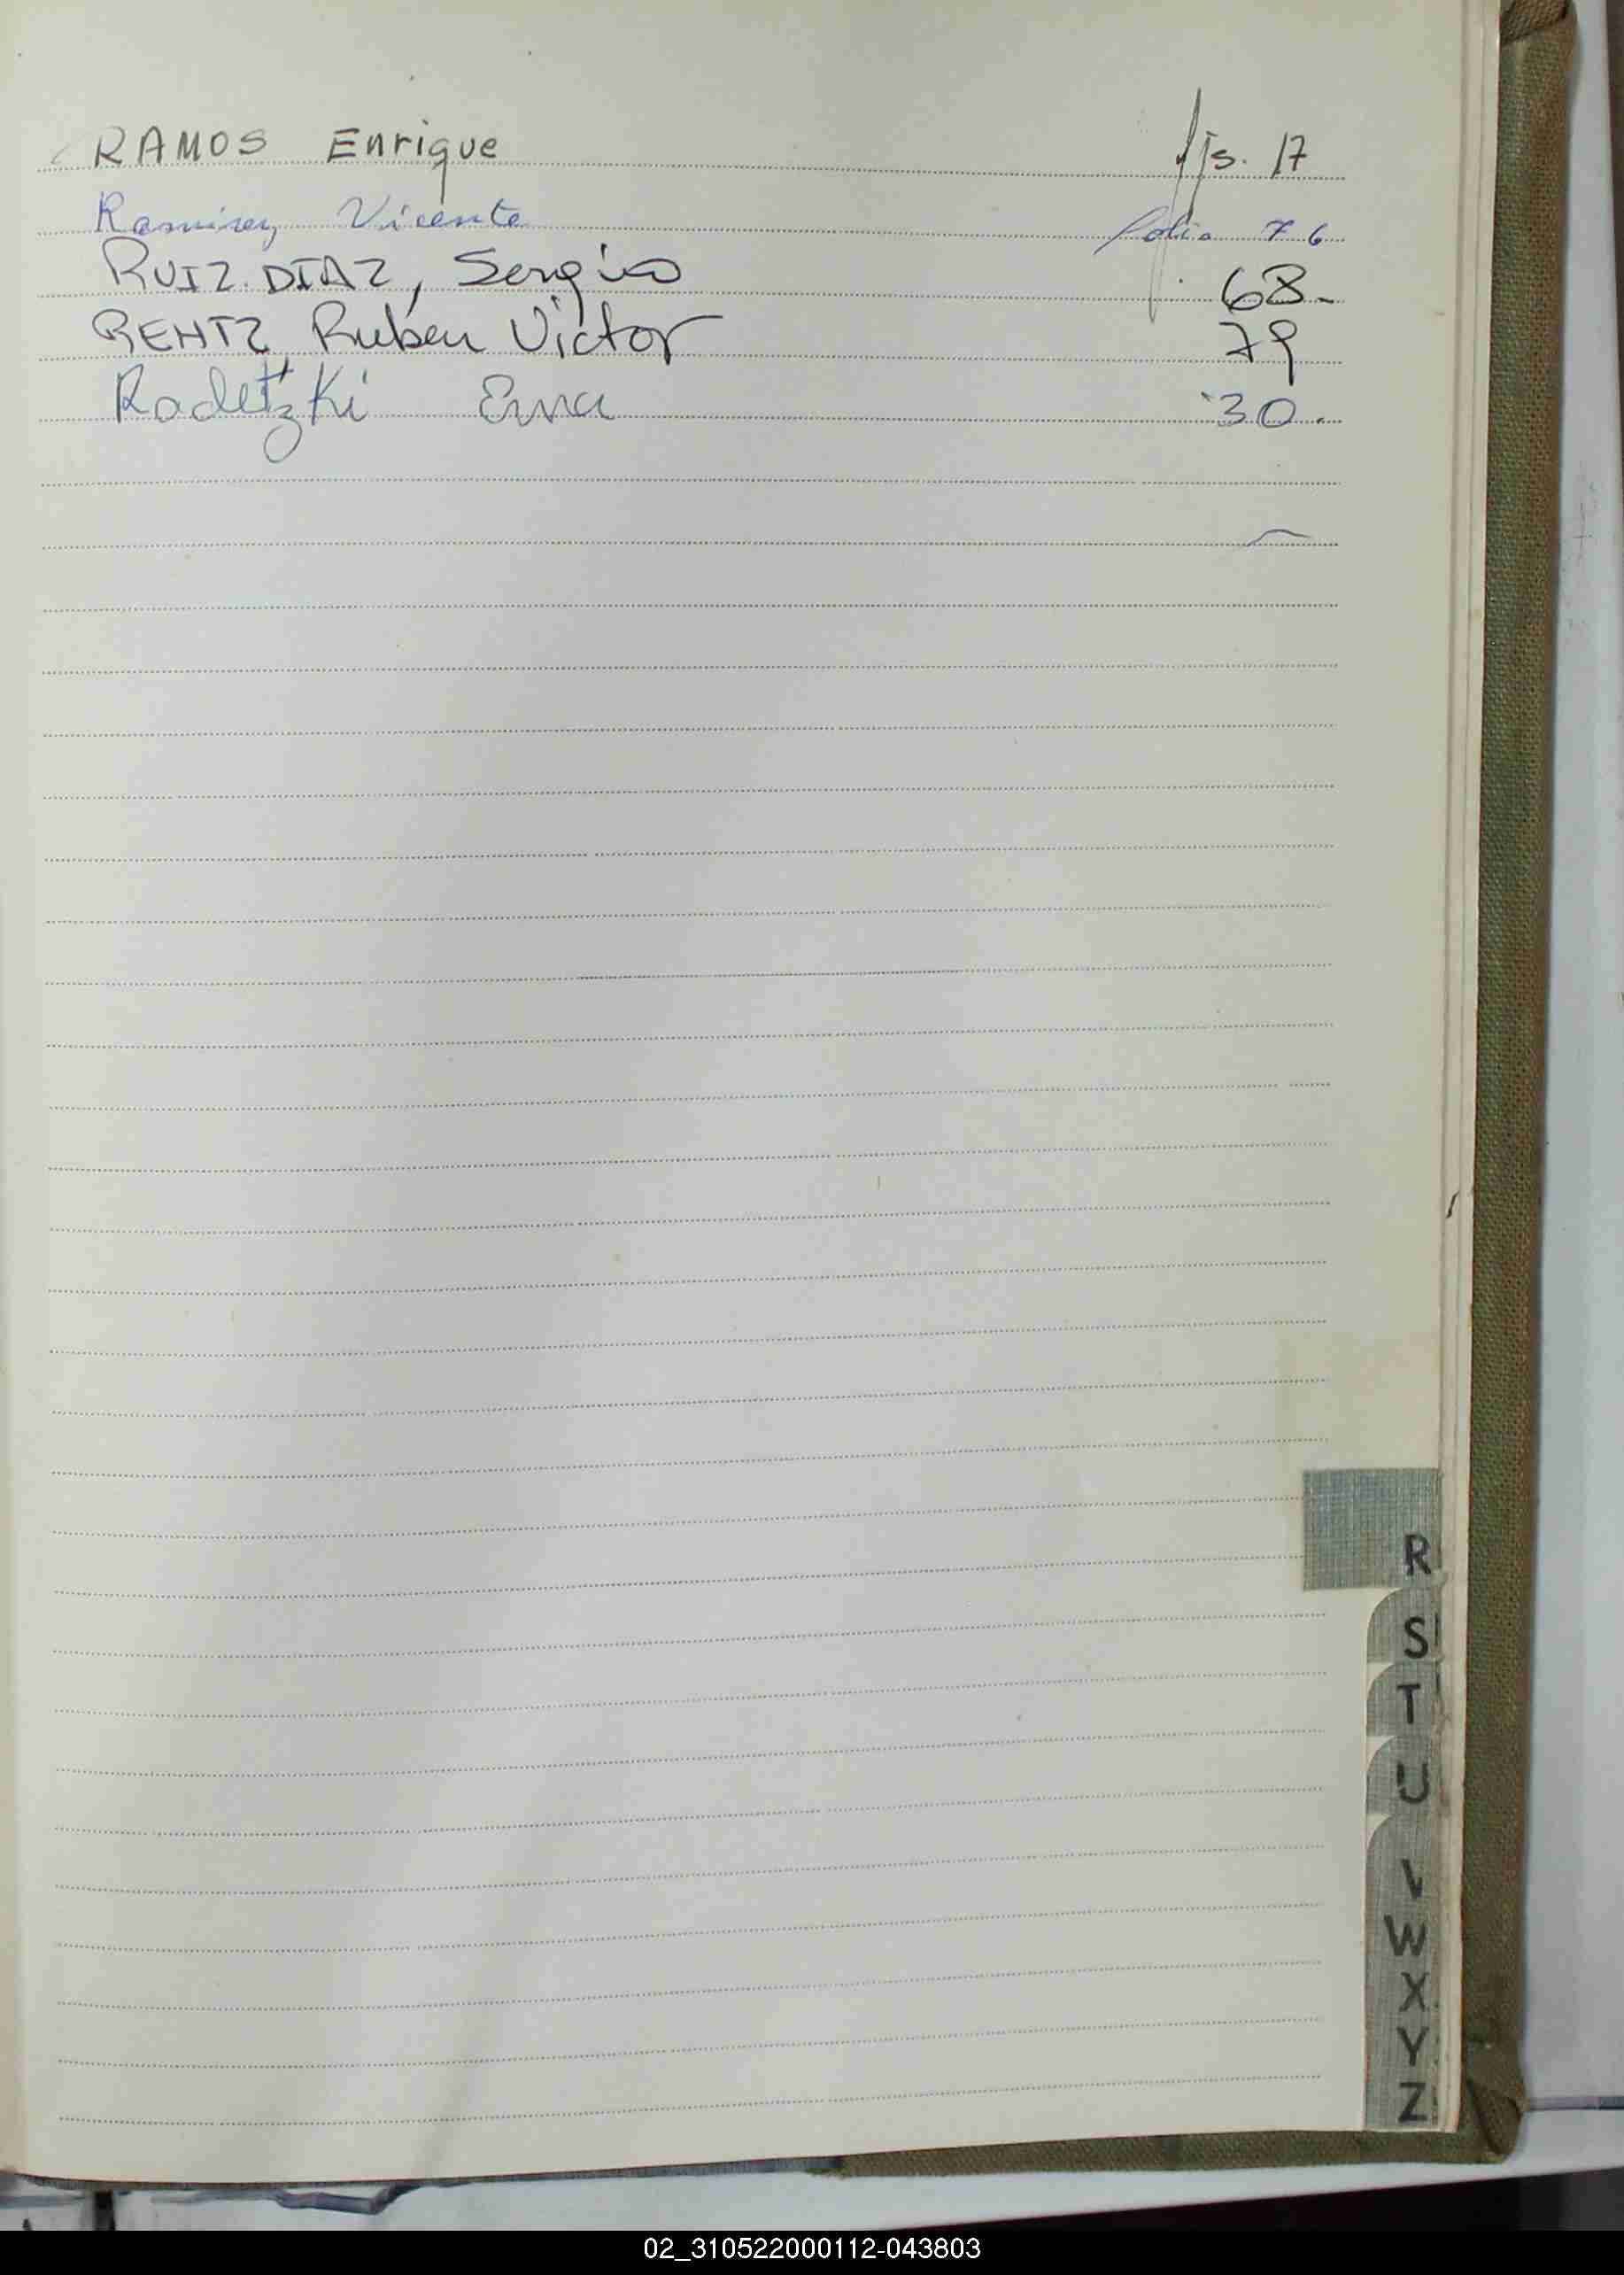 RAMOS Enrique fjs. 17
Ramirez Vicente folio 76
RUIZ DIAZ, Sergio 68.-
RENTZ, Ruben Victor 79
Radetzki Erna 30.
R
S
T
U
V
W
X
Y
Z
02_310522000112-043803